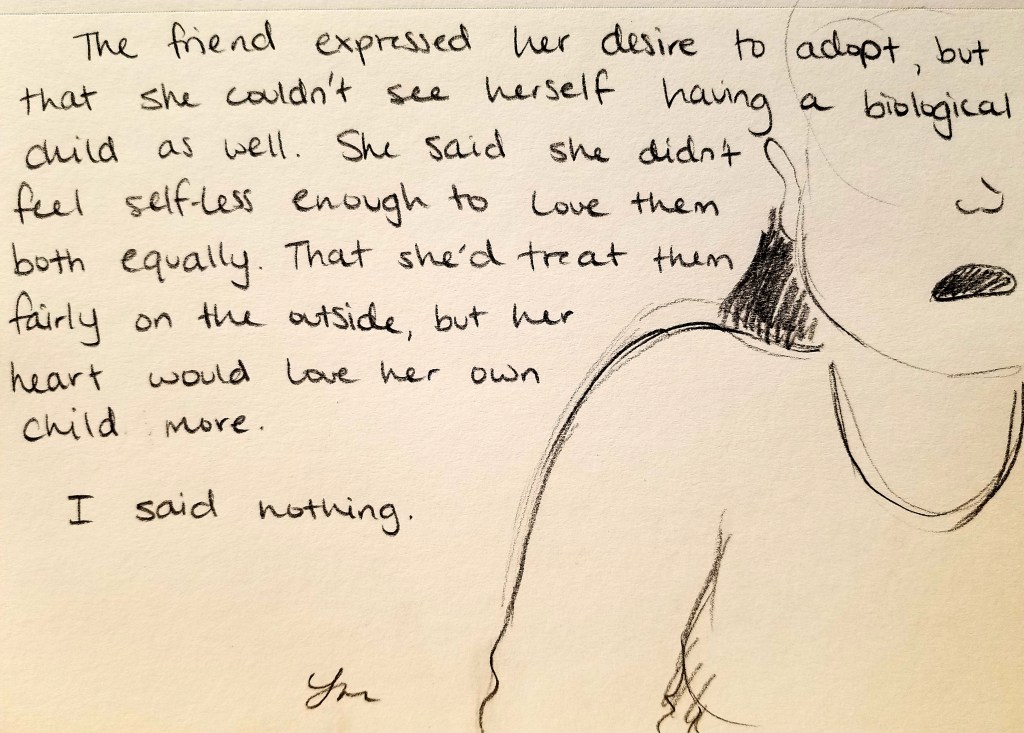 The friend expressed her desire to adopt, but
that she couldn't see herself having a biological
child as well. She said she didn't
feel self-less enough to love them
both equally. That she'd treat them
fairly on the outside, but her
heart would love her own
child more.
I said nothing.